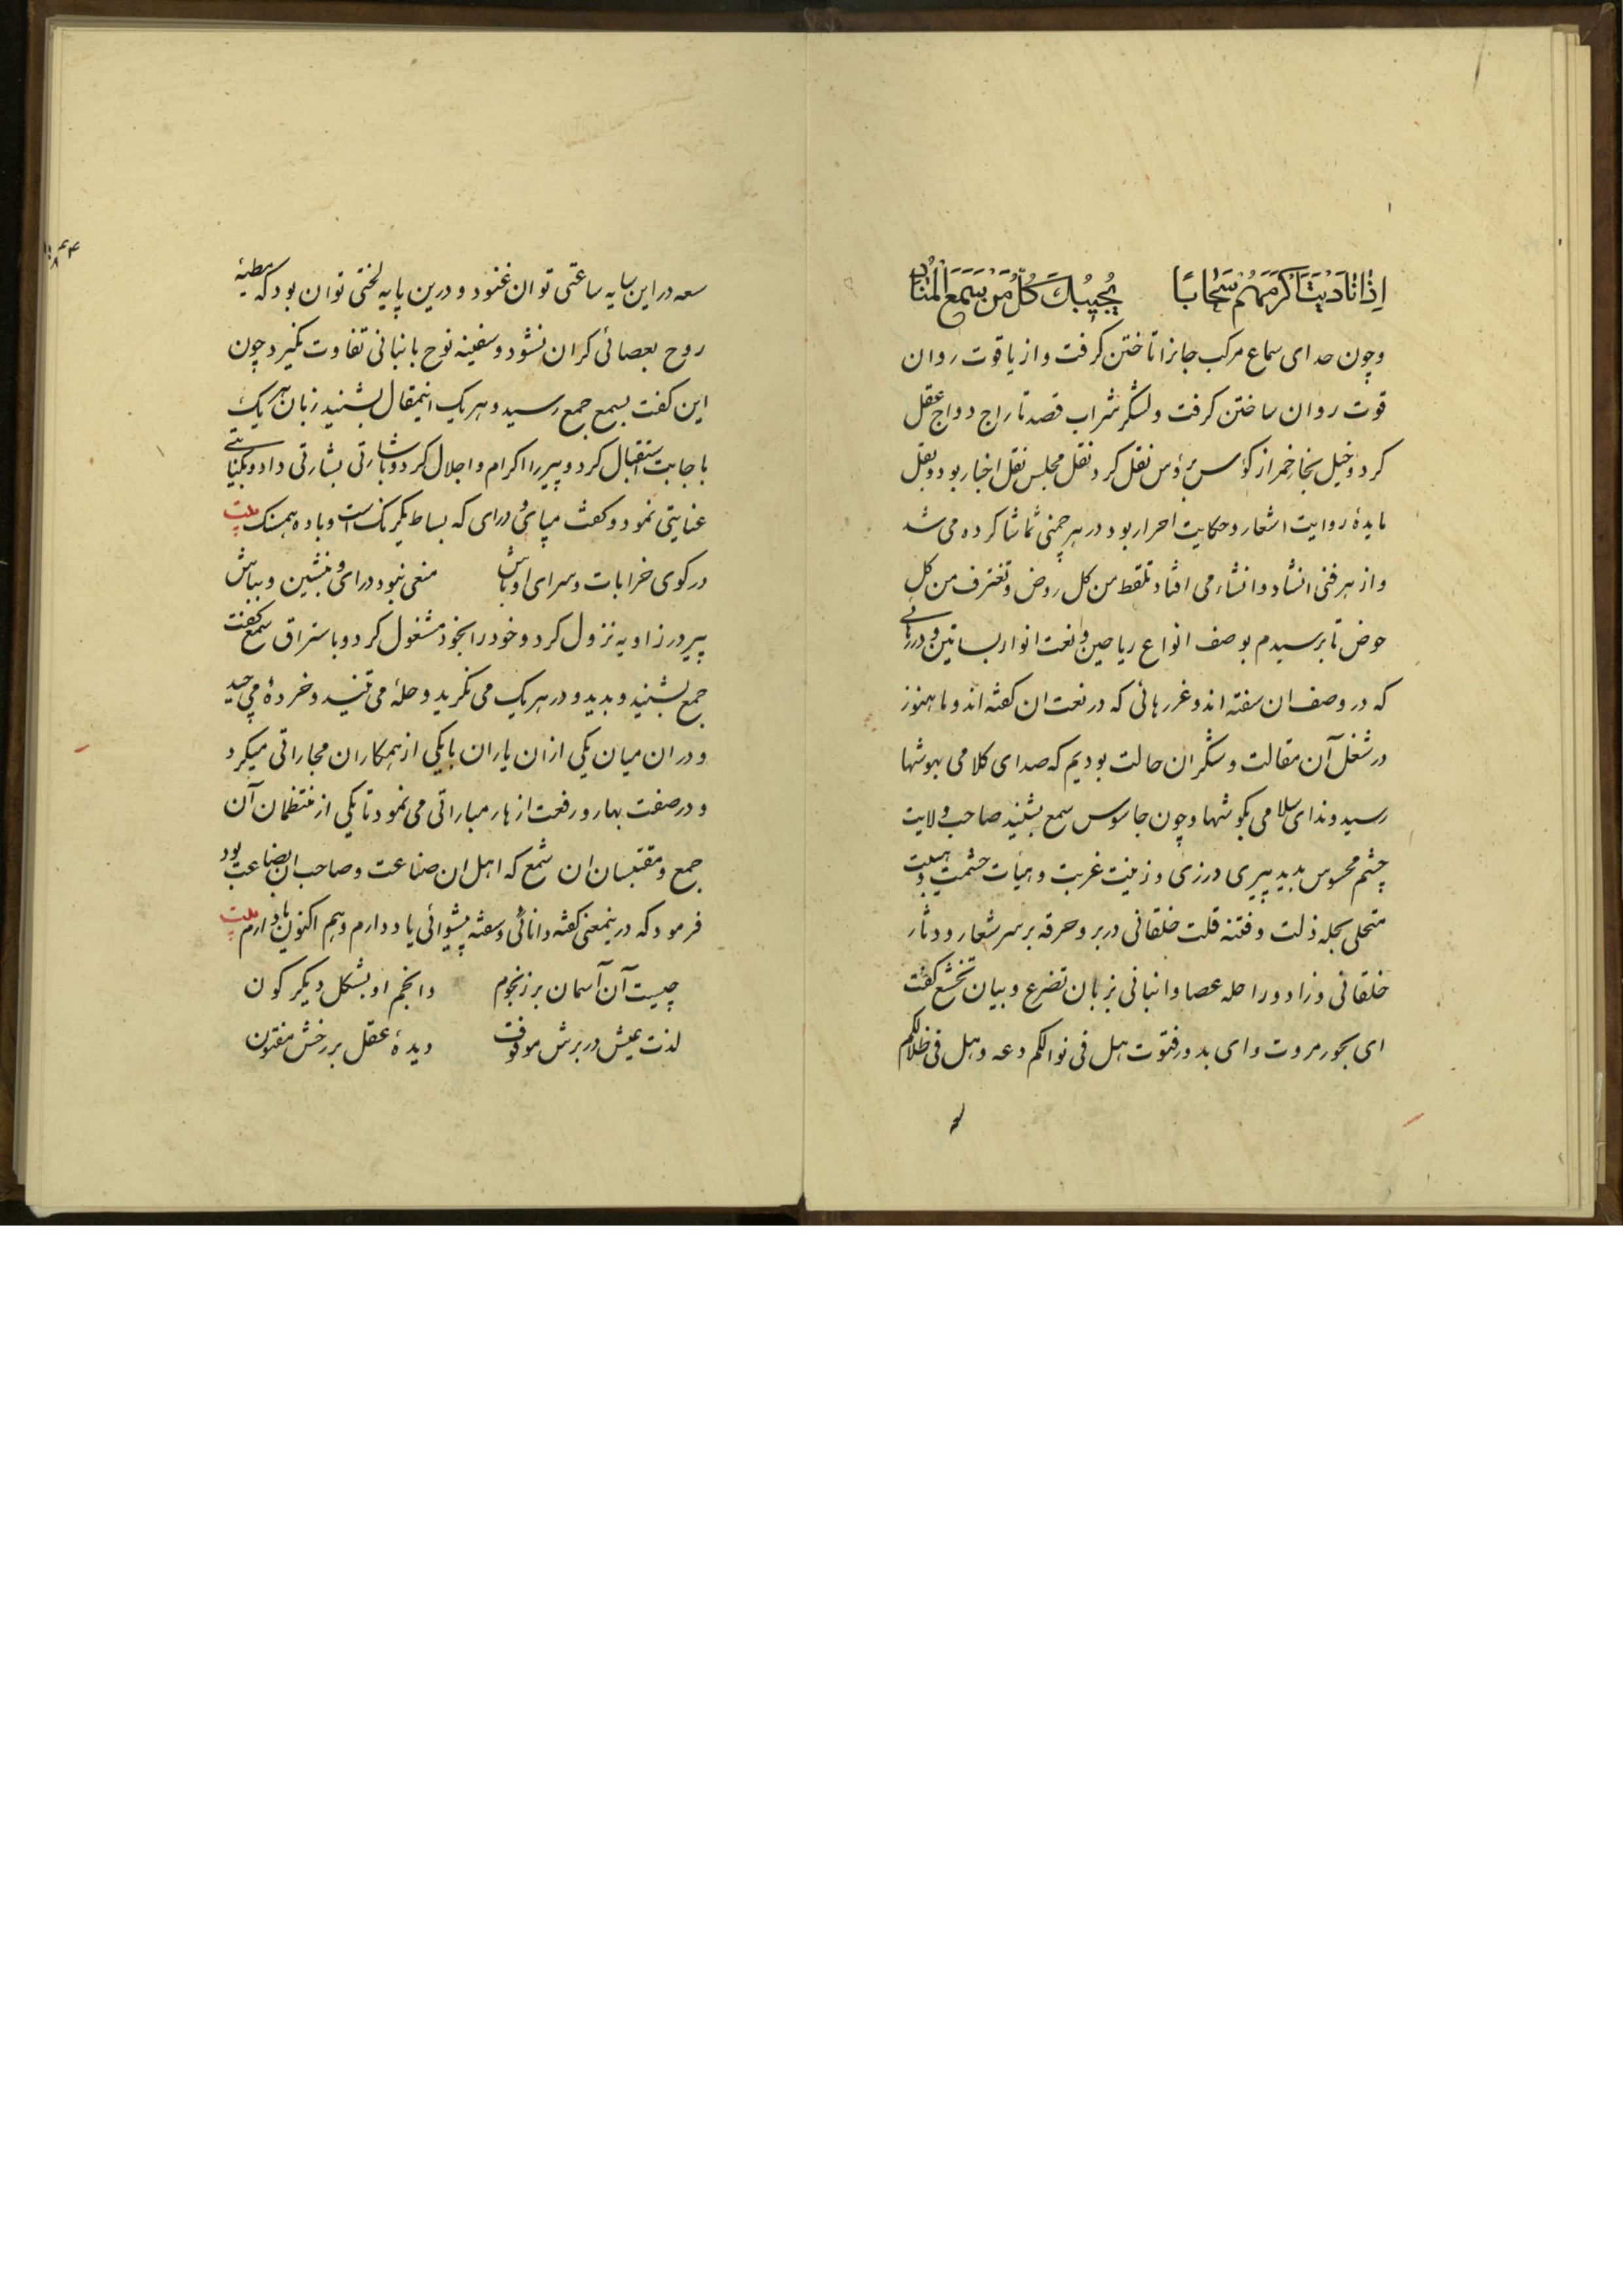 اِذَا نَادَیْتَ اَکْرَمَهُمْ سَحَابًا یُجِیبُكَ کُلُّ مَنْ سَمَعَ الْمُنَادِ
وچون حدای سماع مرکب جانرا تاختن کرفت واز یاقوت روان
قوت روان ساختن کرفت ولشکر شراب قصد تاراج دواج عقل
کرد وخیل بخار خمر از کؤس برؤس نقل کرد نقل مجلس نقل اخیار بود وبقل
مایدهٔ روایت اشعار وحکایت احرار بود در هر چمنی تماشا کرده می شد
واز هر فنی انشاد وانشاء می افتاد تلقط من کل روض وتغترف من کل
حوض تا برسیدم بوصف انواع ریاحین ونعت انوار بساتین ودررهائی
که در وصف ان سفته اند وغررهائی که در نعت ان کفته اند وما هنوز
در شغل آن مقالت وسکران حالت بودیم که صدای کلامی بهوشها
رسید وندای سلامی بکوشها وچون جاسوس سمع بشنید صاحب ولایت
چشم محسوس بدید پیری در زی وزینت غربت وهیأت حشمت وهیبت
متحلی بحله ذلت وفتنه قلت خلقانی در بر وحرقه بر سر شعار ودثار
خلقانی وزاد وراحله عصا وانبانی بزبان تضرع وبیان تخشع کفت
ای بحور مروت وای بدور فتوت هل فی نوالکم دعه وهل فی ظلالکم
سعه در این سایه ساعتی توان غنود ودرین پایه لختی توان بود که مطیهٔ
روح بعصائی کران نشود وسفینه نوح بانبانی تفاوت نکیرد چون
این کفت بسمع جمع رسید وهر یک اینمقال بشنید زبان هر یک
باجابت استقبال کرد وپیر را اکرام واجلال کرد وباشارتی بشارتی داد وبکنایتی
عنایتی نمود وکفت میپای ودر ای که بساط یکرنک است وباده همسنک بیت
در کوی خرابات وسرای اوباش منعی نبود در ای وبنشین وبباش
پیر در زاویه نزول کرد وخود را بخود مشغول کرد وباستراق سمع کفت
جمع بشنید وبدید ودر هر یک می نکرید وحلهٔ می تنید وخردهٔ می چید
ودر ان میان یکی از ان یاران با یکی از همکاران مجاراتی میکرد
ودر صفت بهار ورفعت ازهار مباراتی می نمود تا یکی از منتظمان آن
جمع ومقتبسان ان شمع که اهل ان صناعت وصاحب ان بضاعت بود
فرمود که در ینمعنی کفته دانائی وسفته پیشوائی یاد دارم وهم اکنون یاد ارم بیت
چیست آن آسمان پر ز نجوم وانجم او بشکل دیکر کون
لذت عیش در برش موقوف دیدهٔ عقل بر رخش مفتون